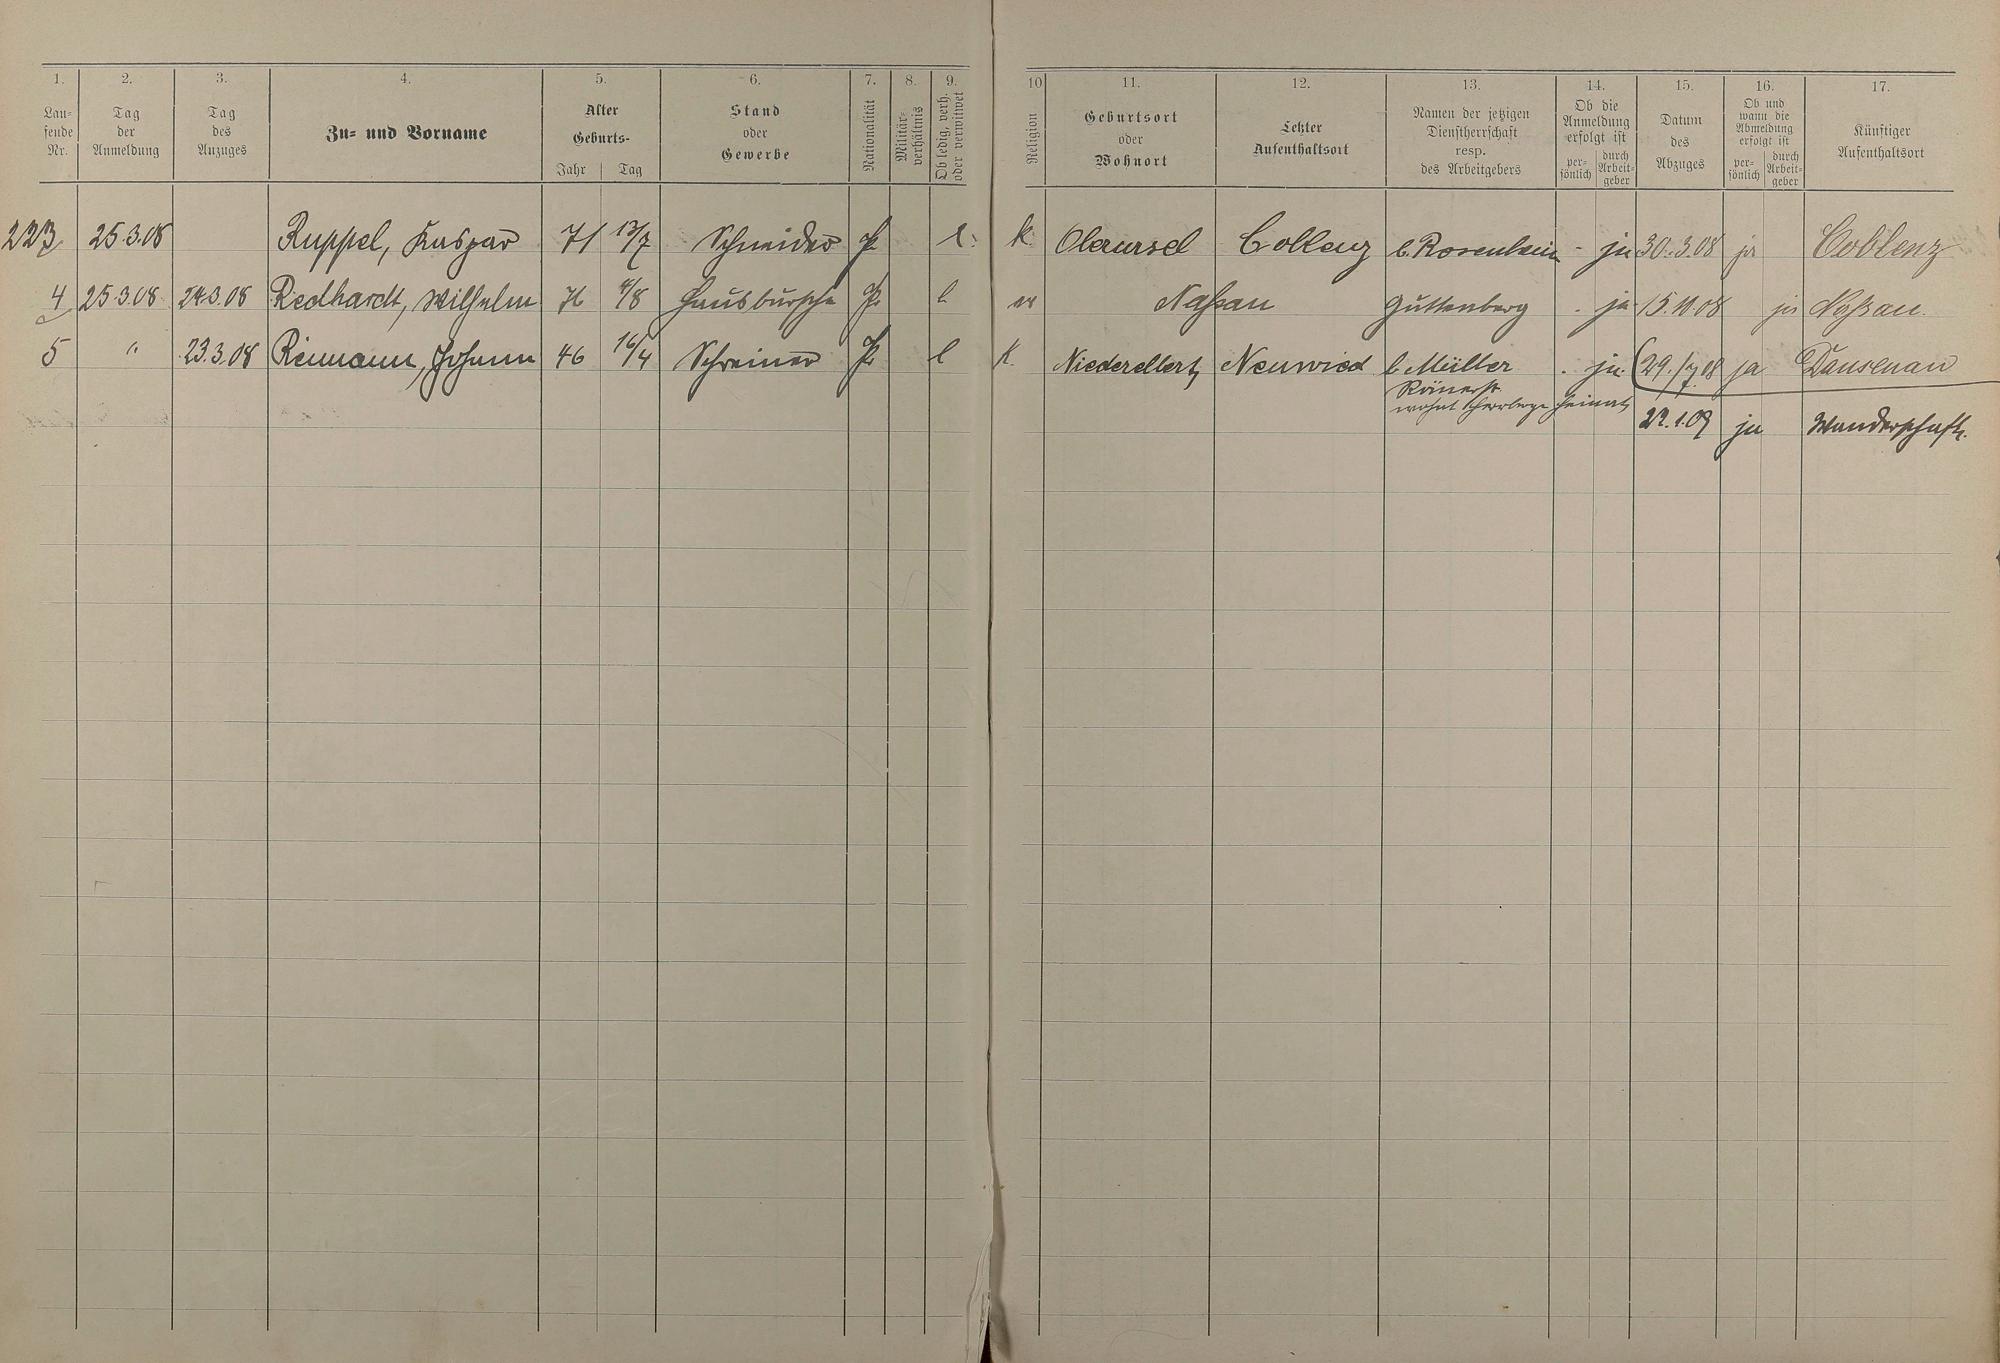 1. 2. 3. 4. 5. 6. 7. 8. 9. 10 11. 12. 13. 14. 15. 16. 17.
Lau-
fende
Nr.
Tag
der
Anmeldung
Tag
des
Anzuges
Zu- und Vorname
Alter
Geburts-
Jahr Tag
Stand
oder
Gewerbe
Nationalität
Militär-
verhältnis
Ob ledig, verh.
oder verwitwet
Religion
Geburtsort
oder
Wohnort
Letzter
Aufenthaltsort
Namen der jetzigen
Dienstherrschaft
resp.
des Arbeitgebers
Ob die
Anmeldung
erfolgt ist
per-
sönlich
durch
Arbeit-
geber
Datum
des
Abzuges
Ob und
wann die
Abmeldung
erfolgt ist
per-
sönlich
durch
Arbeit-
geber
Künftiger
Aufenthaltsort
223 25.3.08 Ruppel, Kaspar 71 13/7 Schneider Pr l. k. Oberursel Coblenz b. Rosenheim - ja 30.3.08 ja Coblenz
4 25.3.08 24.3.08 Redhardt, Wilhelm 76 4/8 Hausbursche Pr l Naßau Guttenberg . ja 15.10.08 ja Naßau.
5 " 23.3.08 Reimann, Johann 46 16/4 Schreiner Pr l K. Niederelbert Neuwied b. Müller . ja (29./7.08 ja Dausenau
Römerstr
wohnt Herberge Heimat
22.1.09 ja Wanderschaft.